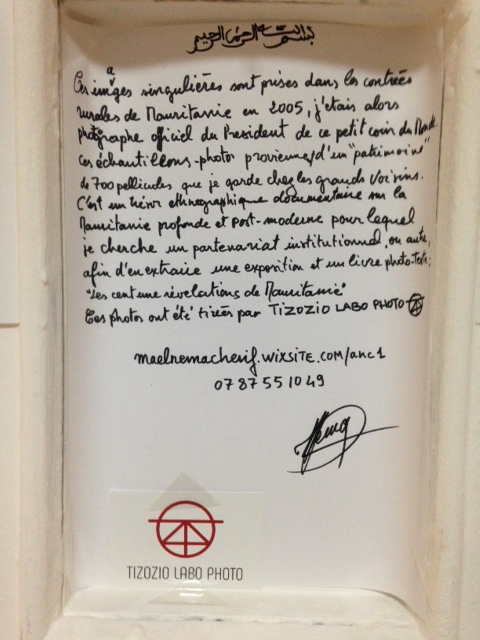 بسم الله الرحمن الرحيم
Ces images singulières sont prises dans les contrées
rurales de Mauritanie en 2005, j'étais alors
photographe officiel du President de ce petit coin du Monde
ces échantillons-photo proviennent d'un "patrimoine"
de 700 pellicules que je garde chez les grands voisins.
C'est un trésor ethnographique documentaire sur la
Mauritanie profonde et post-moderne pour lequel
je cherche un partenariat institutionnal, ou autre,
afin d'en extraire une exposition et un livre photo-texte:
"les cent une révelations de Mauritanie"
Ces photos ont été tirées par TIZOZIO LABO PHOTO
maelnemacherif.wixsite.com/anc1
07 87 55 10 49
TIZOZIO LABO PHOTO